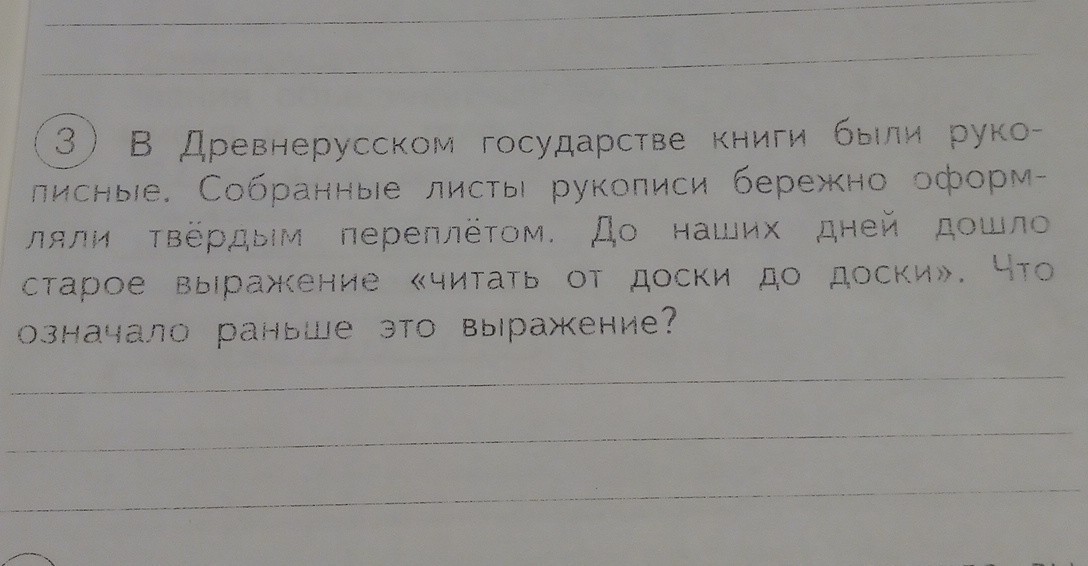 3 В Древнерусском государстве книги были руко-
писные. Собранные листы рукописи бережно оформ-
ляли твёрдым переплётом. До наших дней дошло
старое выражение «читать от доски до доски». Что
означало раньше это выражение?